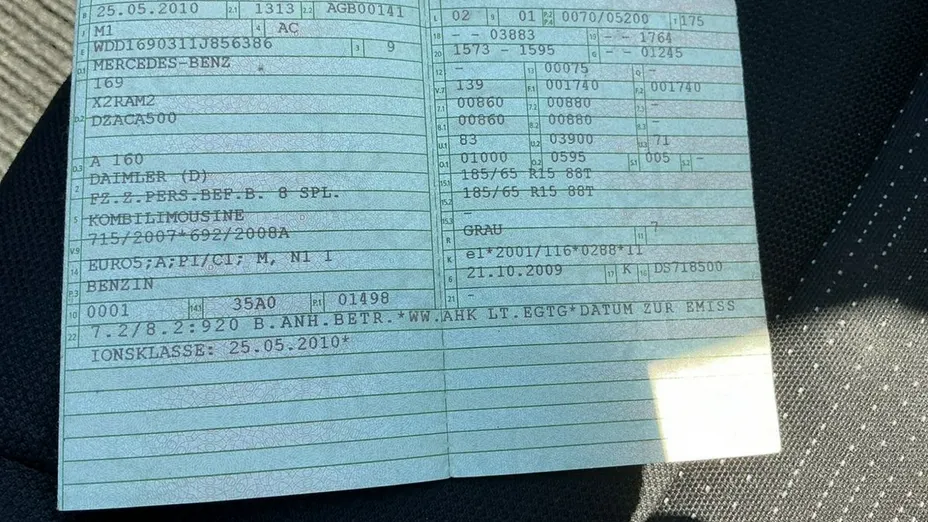 B 25.05.2010 2.1 1313 2.2 AGB00141
J M1 4 AC
E WDD1690311J856386 3 9
D.1 MERCEDES-BENZ
169
X2RAM2
D.2 DZACA500
D.3 A 160
2 DAIMLER (D)
FZ.Z.PERS.BEF.B. 8 SPL.
5 KOMBILIMOUSINE
V.9 715/2007*692/2008A
14 EURO5;A;PI/CI; M, N1 I
P.3 BENZIN
10 0001 14.1 35A0 P.1 01498
22 7.2/8.2:920 B.ANH.BETR.*WW.AHK LT.EGTG*DATUM ZUR EMISS
IONSKLASSE: 25.05.2010*
L 02 9 01 P.2 P.4 0070/05200 T 175
18 - - 03883 19 - - 1764
20 1573 - 1595 G - - 01245
12 - 13 00075 Q -
V.7 139 F.1 001740 F.2 001740
7.1 00860 7.2 00880 7.3 -
8.1 00860 8.2 00880 8.3 -
U.1 83 U.2 03900 U.3 71
O.1 01000 O.2 0595 S.1 005 S.2 -
15.1 185/65 R15 88T
15.2 185/65 R15 88T
15.3 -
R GRAU 11 7
K e1*2001/116*0288*11
6 21.10.2009 17 K 16 DS718500
21 -